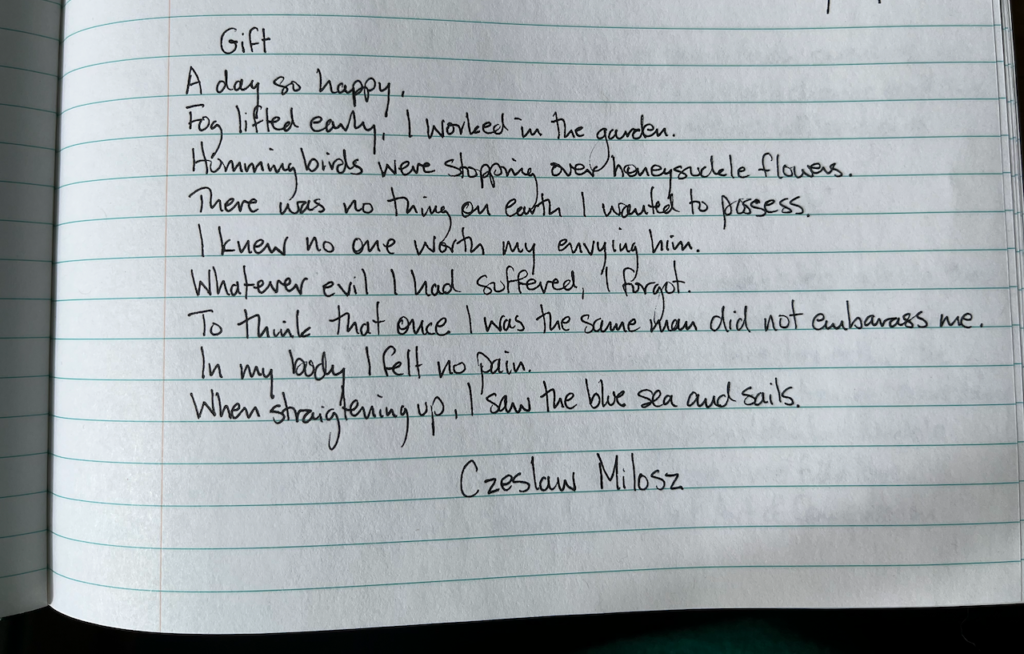 Gift
A day so happy.
Fog lifted early, I worked in the garden.
Hummingbirds were stopping over honeysuckle flowers.
There was no thing on earth I wanted to possess.
I knew no one worth my envying him.
Whatever evil I had suffered, I forgot.
To think that once I was the same man did not embarass me.
In my body I felt no pain.
When straigtening up, I saw the blue sea and sails.
Czeslaw Milosz